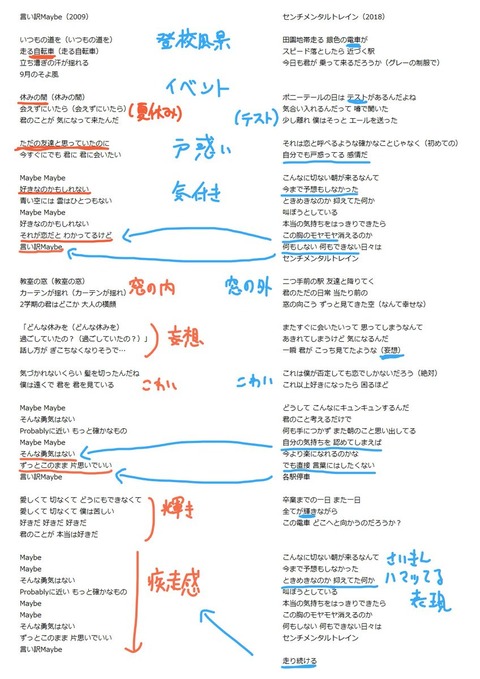 言い訳Maybe（2009）
いつもの道を（いつもの道を）
走る自転車（走る自転車）
立ち漕ぎの汗が揺れる
9月のそよ風
休みの間（休みの間）
会えずにいたら（会えずにいたら）
君のことが 気になって来たんだ
ただの友達と思っていたのに
今すぐにでも 君に 君に会いたい
Maybe Maybe
好きなのかもしれない
青い空には 雲はひとつもない
Maybe Maybe
好きなのかもしれない
それが恋だと わかってるけど
言い訳Maybe
教室の窓（教室の窓）
カーテンが揺れ（カーテンが揺れ）
2学期の君はどこか 大人の横顔
「どんな休みを（どんな休みを）
過ごしていたの？（過ごしていたの？）」
話し方が ぎこちなくなりそうで…
気づかれないくらい 髪を切ったんだね
僕は遠くで 君を 君を見ている
Maybe Maybe
そんな勇気はない
Probablyに近い もっと確かなもの
Maybe Maybe
そんな勇気はない
ずっとこのまま 片思いでいい
言い訳Maybe
愛しくて 切なくて どうにもできなくて
愛しくて 切なくて 僕は苦しい
好きだ 好きだ 好きだ
君のことが 本当は好きだ
Maybe
Maybe
そんな勇気はない
Probablyに近い もっと確かなもの
Maybe
Maybe
そんな勇気はない
ずっとこのまま 片思いでいい
言い訳Maybe
登校風景
イベント
(夏休み)
(テスト)
戸惑い
気付き
窓の内
窓の外
妄想
こわい
こわい
輝き
疾走感
センチメンタルトレイン（2018）
田園地帯走る 銀色の電車が
スピード落としたら 近づく駅
今日も君が 乗って来るだろうか（グレーの制服で）
ポニーテールの日は テストがあるんだよね
気合い入れるんだって 噂で聞いた
少し離れ 僕はそっと エールを送った
それは恋と呼べるような確かなことじゃなく（初めての）
自分でも戸惑ってる 感情だ
こんなに切ない朝が来るなんて
今まで予想もしなかった
ときめきなのか 抑えてた何か
叫ぼうとしている
本当の気持ちをはっきりできたら
この胸のモヤモヤ消えるのか
何もしない 何もできない日々は
センチメンタルトレイン
二つ手前の駅 友達と降りてく
君のただの日常 当たり前の
窓の向こう ずっと見てきた空（なんて幸せな）
またすぐに会いたいって 思ってしまうなんて
あきれてしまうけど 気になるんだ
一瞬 君が こっち見てたような（妄想）
これは僕が否定しても恋でしかないだろう（絶対）
これ以上好きになったら 困るほど
どうして こんなにキュンキュンするんだ
君のこと考えるだけで
何も手につかず また朝のこと思い出してる
自分の気持ちを 認めてしまえば
今より楽になれるのかな
でも直接 言葉にはしたくない
各駅停車
卒業までの一日 また一日
全てが輝きながら
この電車 どこへと向かうのだろうか？
こんなに切ない朝が来るなんて
今まで予想もしなかった
ときめきなのか 抑えてた何か
叫ぼうとしている
本当の気持ちをはっきりできたら
この胸のモヤモヤ消えるのか
何もしない 何もできない日々は
センチメンタルトレイン
走り続ける
さいきん
ハマってる
表現